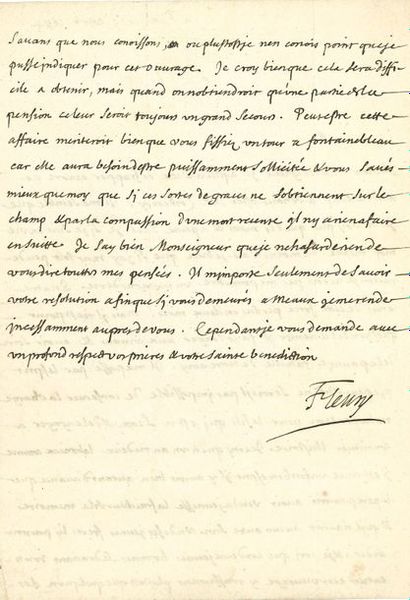 Savans que nous conoissons, ou plustost je nen conois point que je
pusse indiquer pour cet ouvrage. Je croy bien que cela sera diffi-
cile a obtenir, mais quand on nobtiendroit quune partie de la
pension ce leur seroit toujours un grand secours. Peutestre cette
affaire meriteroit bien que vous fissiez un tour a fontainebleau
car elle aura besoin destre puissamment sollicitée & vous savés
mieux que moy que si ces sortes de graces ne sobtiennent sur le
champ & par la compassion dune mort recente il ny a rien a faire
ensuitte. Je say bien Monseigneur que je ne hasarde rien de
vous dire touttes mes pensées. Il mimporte seulement de savoir
votre resolution afin que si vous demeurés a Meaux je me rende
incessamment aupres de vous. Cependant je vous demande avec
un profond respect vos prieres & votre sainte benediction
Fleury